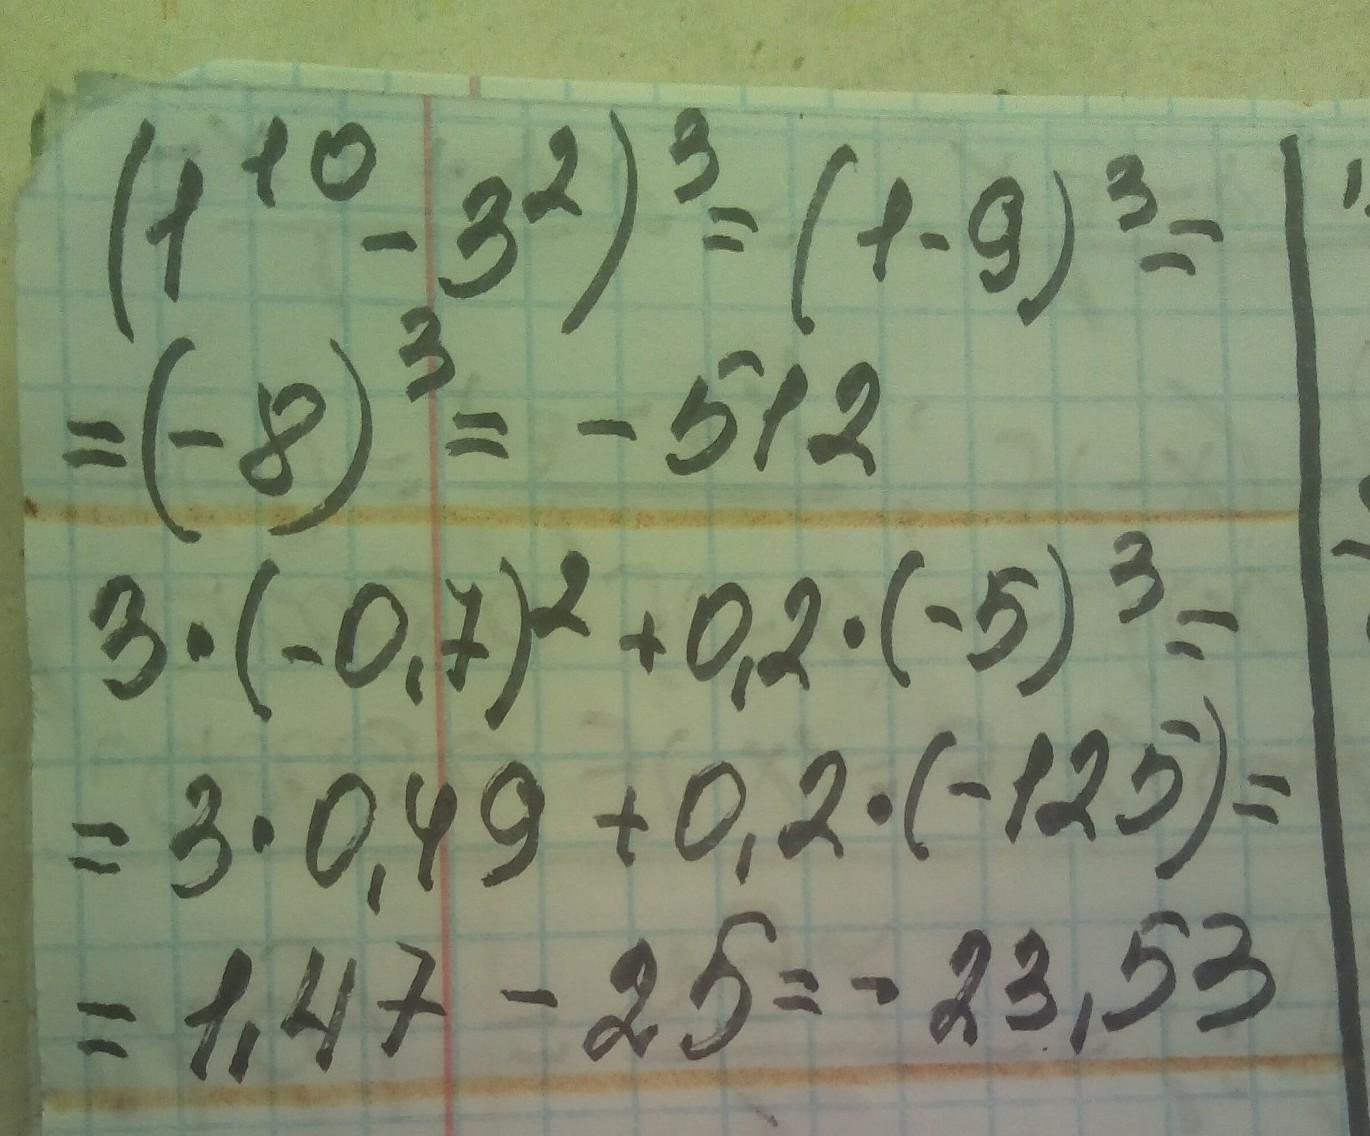 (1¹⁰ - 3²)³ = (1 - 9)³ =
= (-8)³ = - 512
3 · (-0,7)² + 0,2 · (-5)³ =
= 3 · 0,49 + 0,2 · (-125) =
= 1,47 - 25 = - 23,53